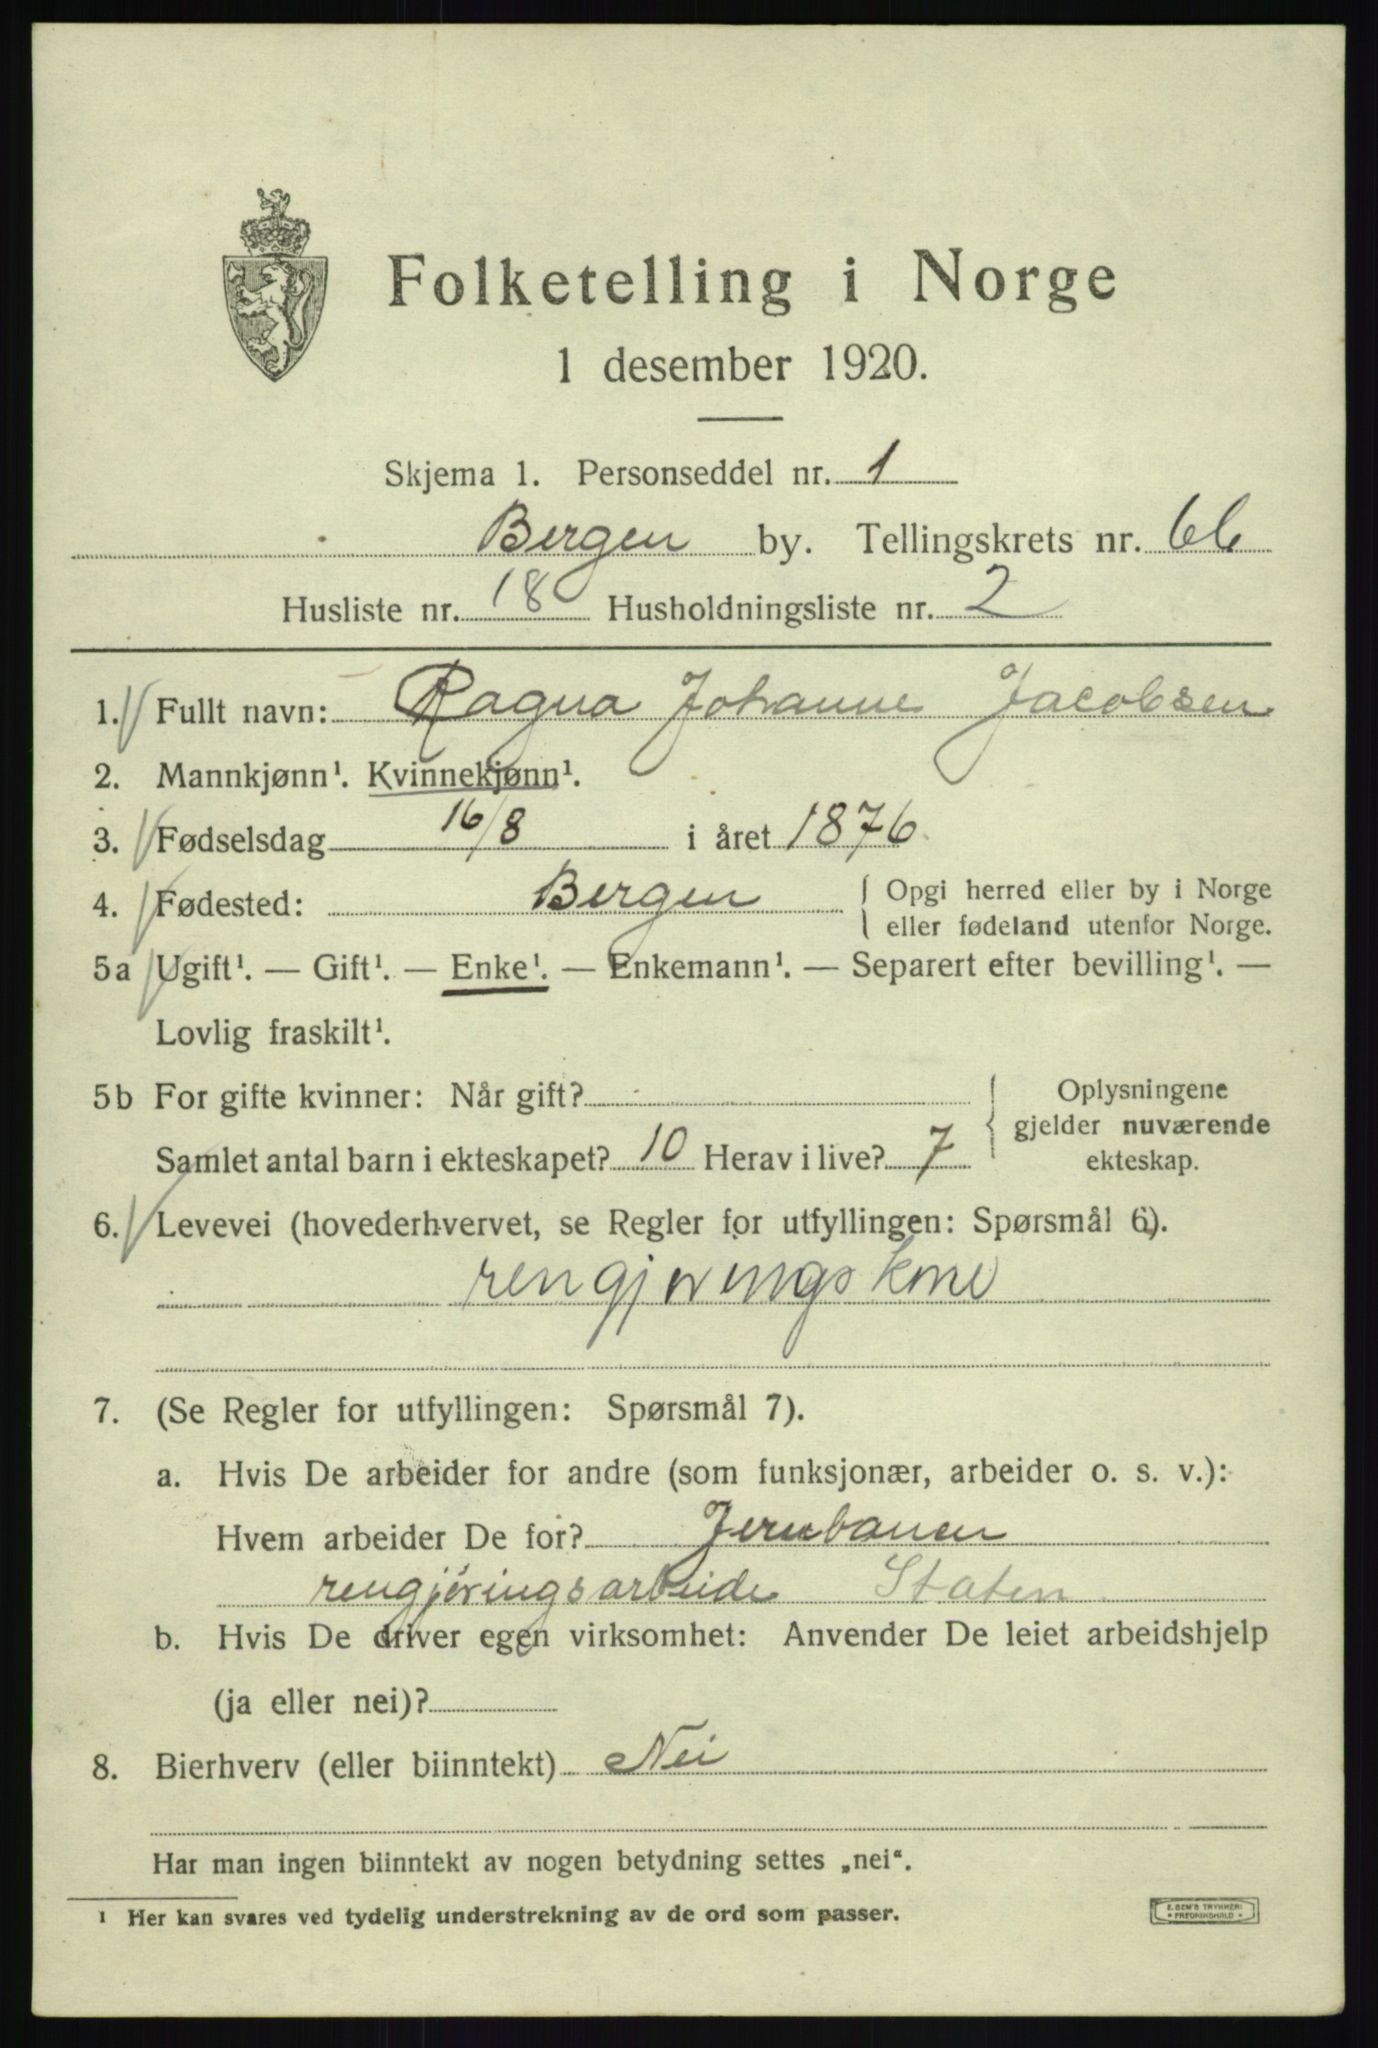 Folketelling i Norge
1 desember 1920.
Skjema 1. Personseddel nr. 1
Bergen by. Tellingskrets nr. 66
Husliste nr. 18 Husholdningsliste nr. 2
1. Fullt navn: Ragna Johanne Jacobsen
2. Mannkjønn¹. Kvinnekjønn¹.
3. Fødselsdag 16/8 i året 1876
4. Fødested: Bergen { Opgi herred eller by i Norge
eller fødeland utenfor Norge.
5a Ugift¹. — Gift¹. — Enke¹. — Enkemann¹. — Separert efter bevilling¹. —
Lovlig fraskilt¹.
5b For gifte kvinner: Når gift? { Oplysningene
gjelder nuværende
Samlet antal barn i ekteskapet? 10 Herav i live? 7 ekteskap.
6. Levevei (hovederhvervet, se Regler for utfyllingen: Spørsmål 6).
rengjøringskone
7. (Se Regler for utfyllingen: Spørsmål 7).
a. Hvis De arbeider for andre (som funksjonær, arbeider o. s. v.):
Hvem arbeider De for? Jernbanen
rengjøringsarbeide Staten
b. Hvis De driver egen virksomhet: Anvender De leiet arbeidshjelp
(ja eller nei)?
8. Bierhverv (eller biinntekt) Nei
Har man ingen biinntekt av nogen betydning settes „nei“.
¹ Her kan svares ved tydelig understrekning av de ord som passer.
E. SEM'S TRYKKERI
FREDRIKSHALD